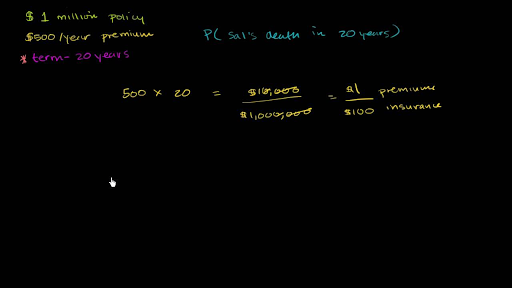 $ 1 million policy
$500/year premium
P( Sal's death in 20 years)
* term- 20 years
500 × 20 = $10,000 / $1,000,000 = $1 premiums / $100 insurance